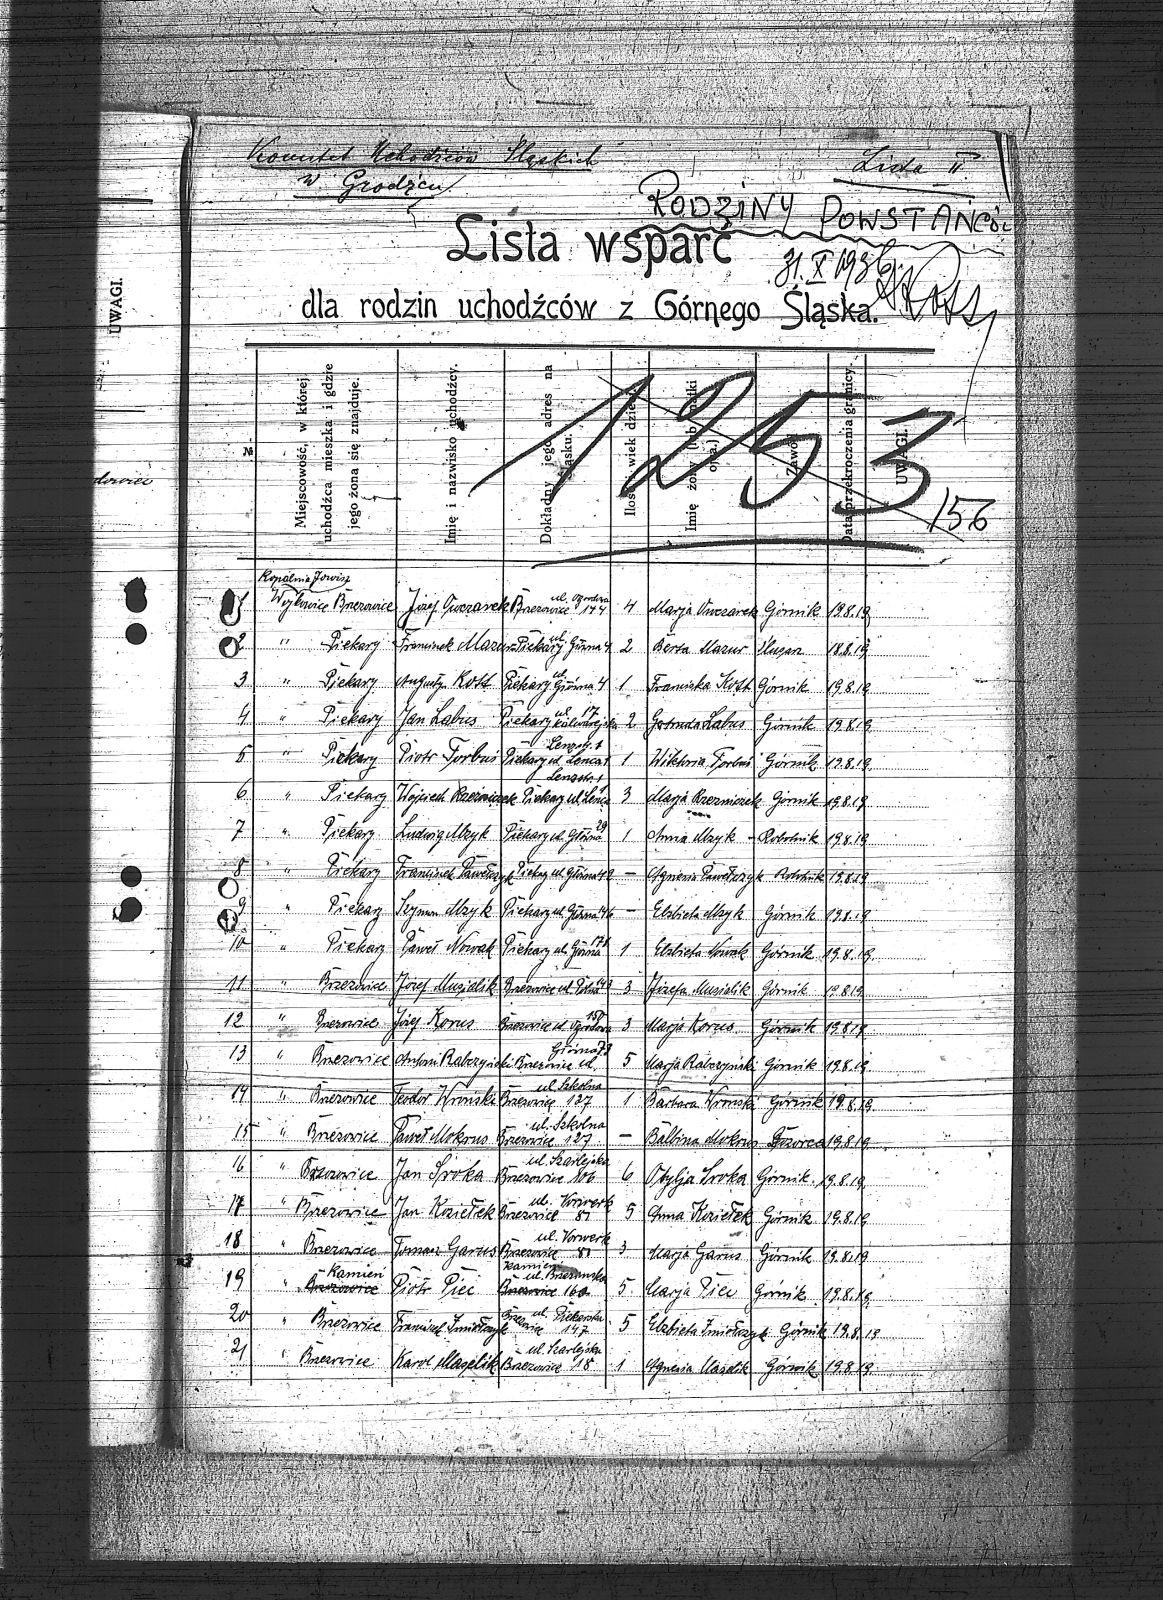 Komitet Uchodźców Śląskich
w Grodźcu
Lista II
RODZINY POWSTAŃCÓW
Lista wsparć
31.X 1936
dla rodzin uchodźców z Górnego Śląska.
UWAGI.
№
Miejscowość, w której uchodźca mieszka i gdzie jego żona się znajduje.
Imię i nazwisko uchodźcy.
Dokładny jego adres na Śląsku.
Ilość i wiek dzieci
Imię żony (lub matki ojca.)
Zawód
Data przekroczenia granicy.
UWAGI.
1253
156
Kopalnia Jowisz
Wojkowice Brzezowice Józef Owczarek Brzezowice ul. Ogrodowa 174 4 Marja Owczarek Górnik 19.8.19
2 " Piekary Franciszek Mazur Piekary ul. Górna 4 2 Berta Mazur Ślusarz 18.8.19
3 " Piekary Augustyn Kott Piekary ul. Główna 4 1 Franciszka Kott Górnik 19.8.19
4 " Piekary Jan Labus Piekary ul. Kalwaryjska 17 2 Gertruda Labus Górnik 19.8.19
5 " Piekary Piotr Torbuś Piekary ul. Lenzstr. 1 1 Wiktoria Torbuś Górnik 19.8.19
6 " Piekary Wojciech Rzezniczek Piekary ul. Lenzstr. 1 3 Marja Rzezniczek Górnik 19.8.19
7 " Piekary Ludwig Mzyk Piekary ul. Główna 29 1 Anna Mzyk Robotnik 19.8.19
8 " Piekary Franciszek Pawełczyk Piekary ul. Główna 42 — Agnesia Pawełczyk Robotnik 19.8.19
9 " Piekary Szymon Mzyk Piekary ul. Górna 46 — Elzbieta Mzyk Górnik 19.8.19
10 " Piekary Paweł Nowak Piekary ul. Górna 178 1 Elzbieta Nowak Górnik 19.8.19
11 " Brzezowice Józef Musialik Brzezowice ul. Polna 3 Józefa Musialik Górnik 19.8.19
12 " Brzezowice Józef Korus Brzezowice ul. Ogrodowa 157 3 Marja Korus Górnik 19.8.19
13 " Brzezowice Antoni Rabczyński Brzezowice ul. Górna 73 5 Marja Rabczyński Górnik 19.8.19
14 " Brzezowice Teodor Wroński Brzezowice ul. Szkolna 127 1 Barbara Wroński Górnik 19.8.19
15 " Brzezowice Paweł Mokrus Brzezowice ul. Szkolna 127 — Balbina Mokrus Dozorca 19.8.19
16 " Brzezowice Jan Sroka Brzezowice ul. Szarlejska 106 6 Otylja Sroka Górnik 19.8.19
17 " Brzezowice Jan Koziełek Brzezowice ul. Vorwerk 81 5 Anna Koziełek Górnik 19.8.19
18 " Brzezowice Tomasz Garus Brzezowice ul. Vorwerk 81 3 Marja Garus Górnik 19.8.19
19 " Kamień Brzezowice Piotr Piec Kamień ul. Brzezowska Brzezowice 160 5 Marja Piec Górnik 19.8.19
20 " Brzezowice Franciszek Smiałczyk Brzezowice ul. Piekarska 147 5 Elzbieta Smiałczyk Górnik 19.8.19
21 " Brzezowice Karol Maszlik Brzezowice ul. Szarlejska 18 1 Agnesia Maszlik Górnik 19.8.19